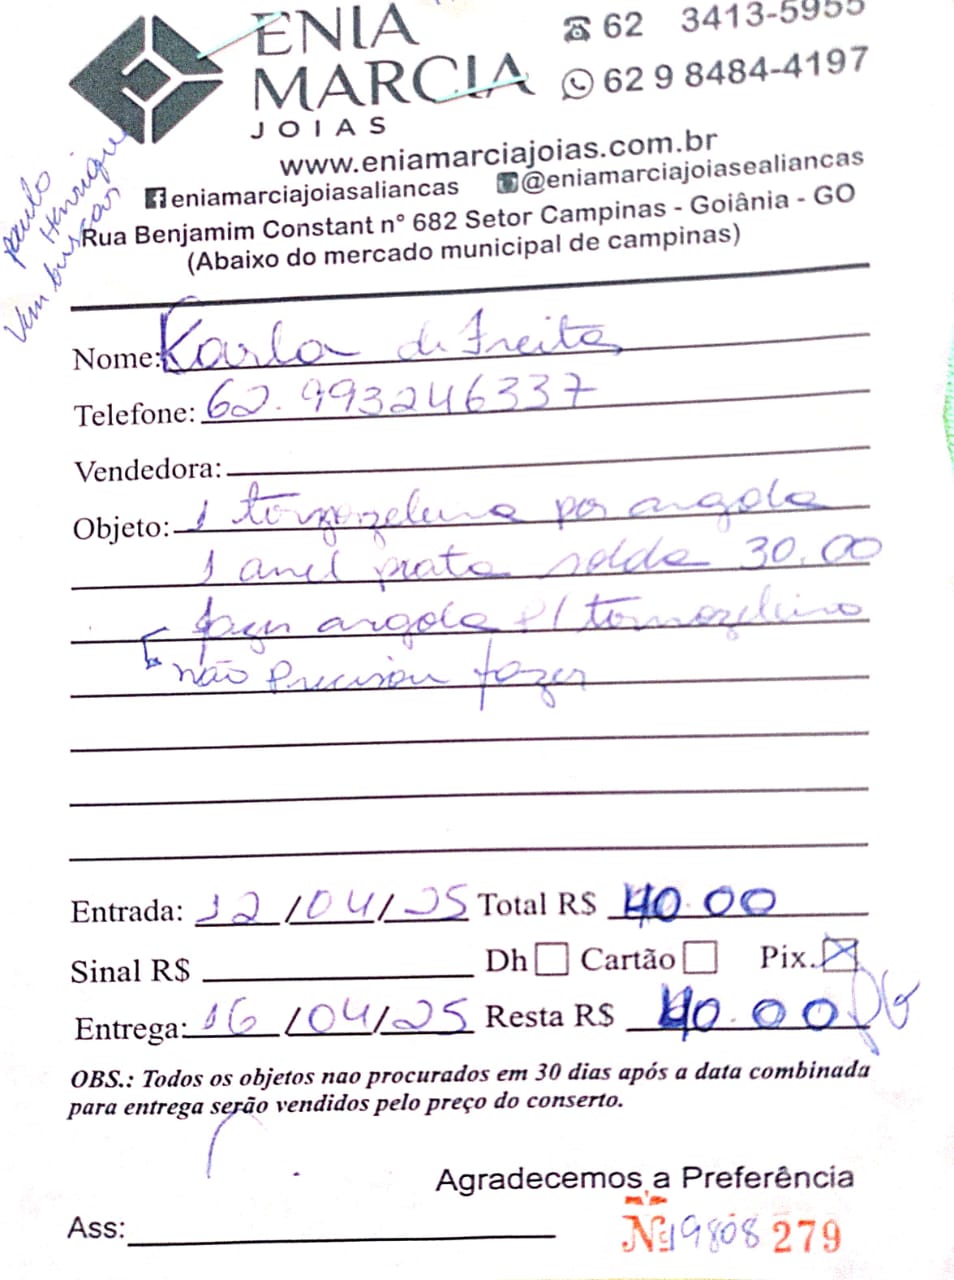 ENIA
MARCIA
JOIAS
62 3413-5955
62 9 8484-4197
www.eniamarciajoias.com.br
eniamarciajoiasaliancas @eniamarciajoiasealiancas
Rua Benjamim Constant n° 682 Setor Campinas - Goiânia - GO
(Abaixo do mercado municipal de campinas)
Paulo
Henrique
Vem buscar
Nome: Karla de Freitas
Telefone: 62.993246337
Vendedora:
Objeto: 1 tornozeleira por argola
1 anel prata solda 30.00
fazer argola p/ tornozeleira
não Precisou fazer
Entrada: 12/04/25 Total R$ 40.00
Sinal R$ Dh Cartão Pix. X
Entrega: 16/04/25 Resta R$ 40.00 PG
OBS.: Todos os objetos nao procurados em 30 dias após a data combinada
para entrega serão vendidos pelo preço do conserto.
Agradecemos a Preferência
Ass:
Nº 19808 279